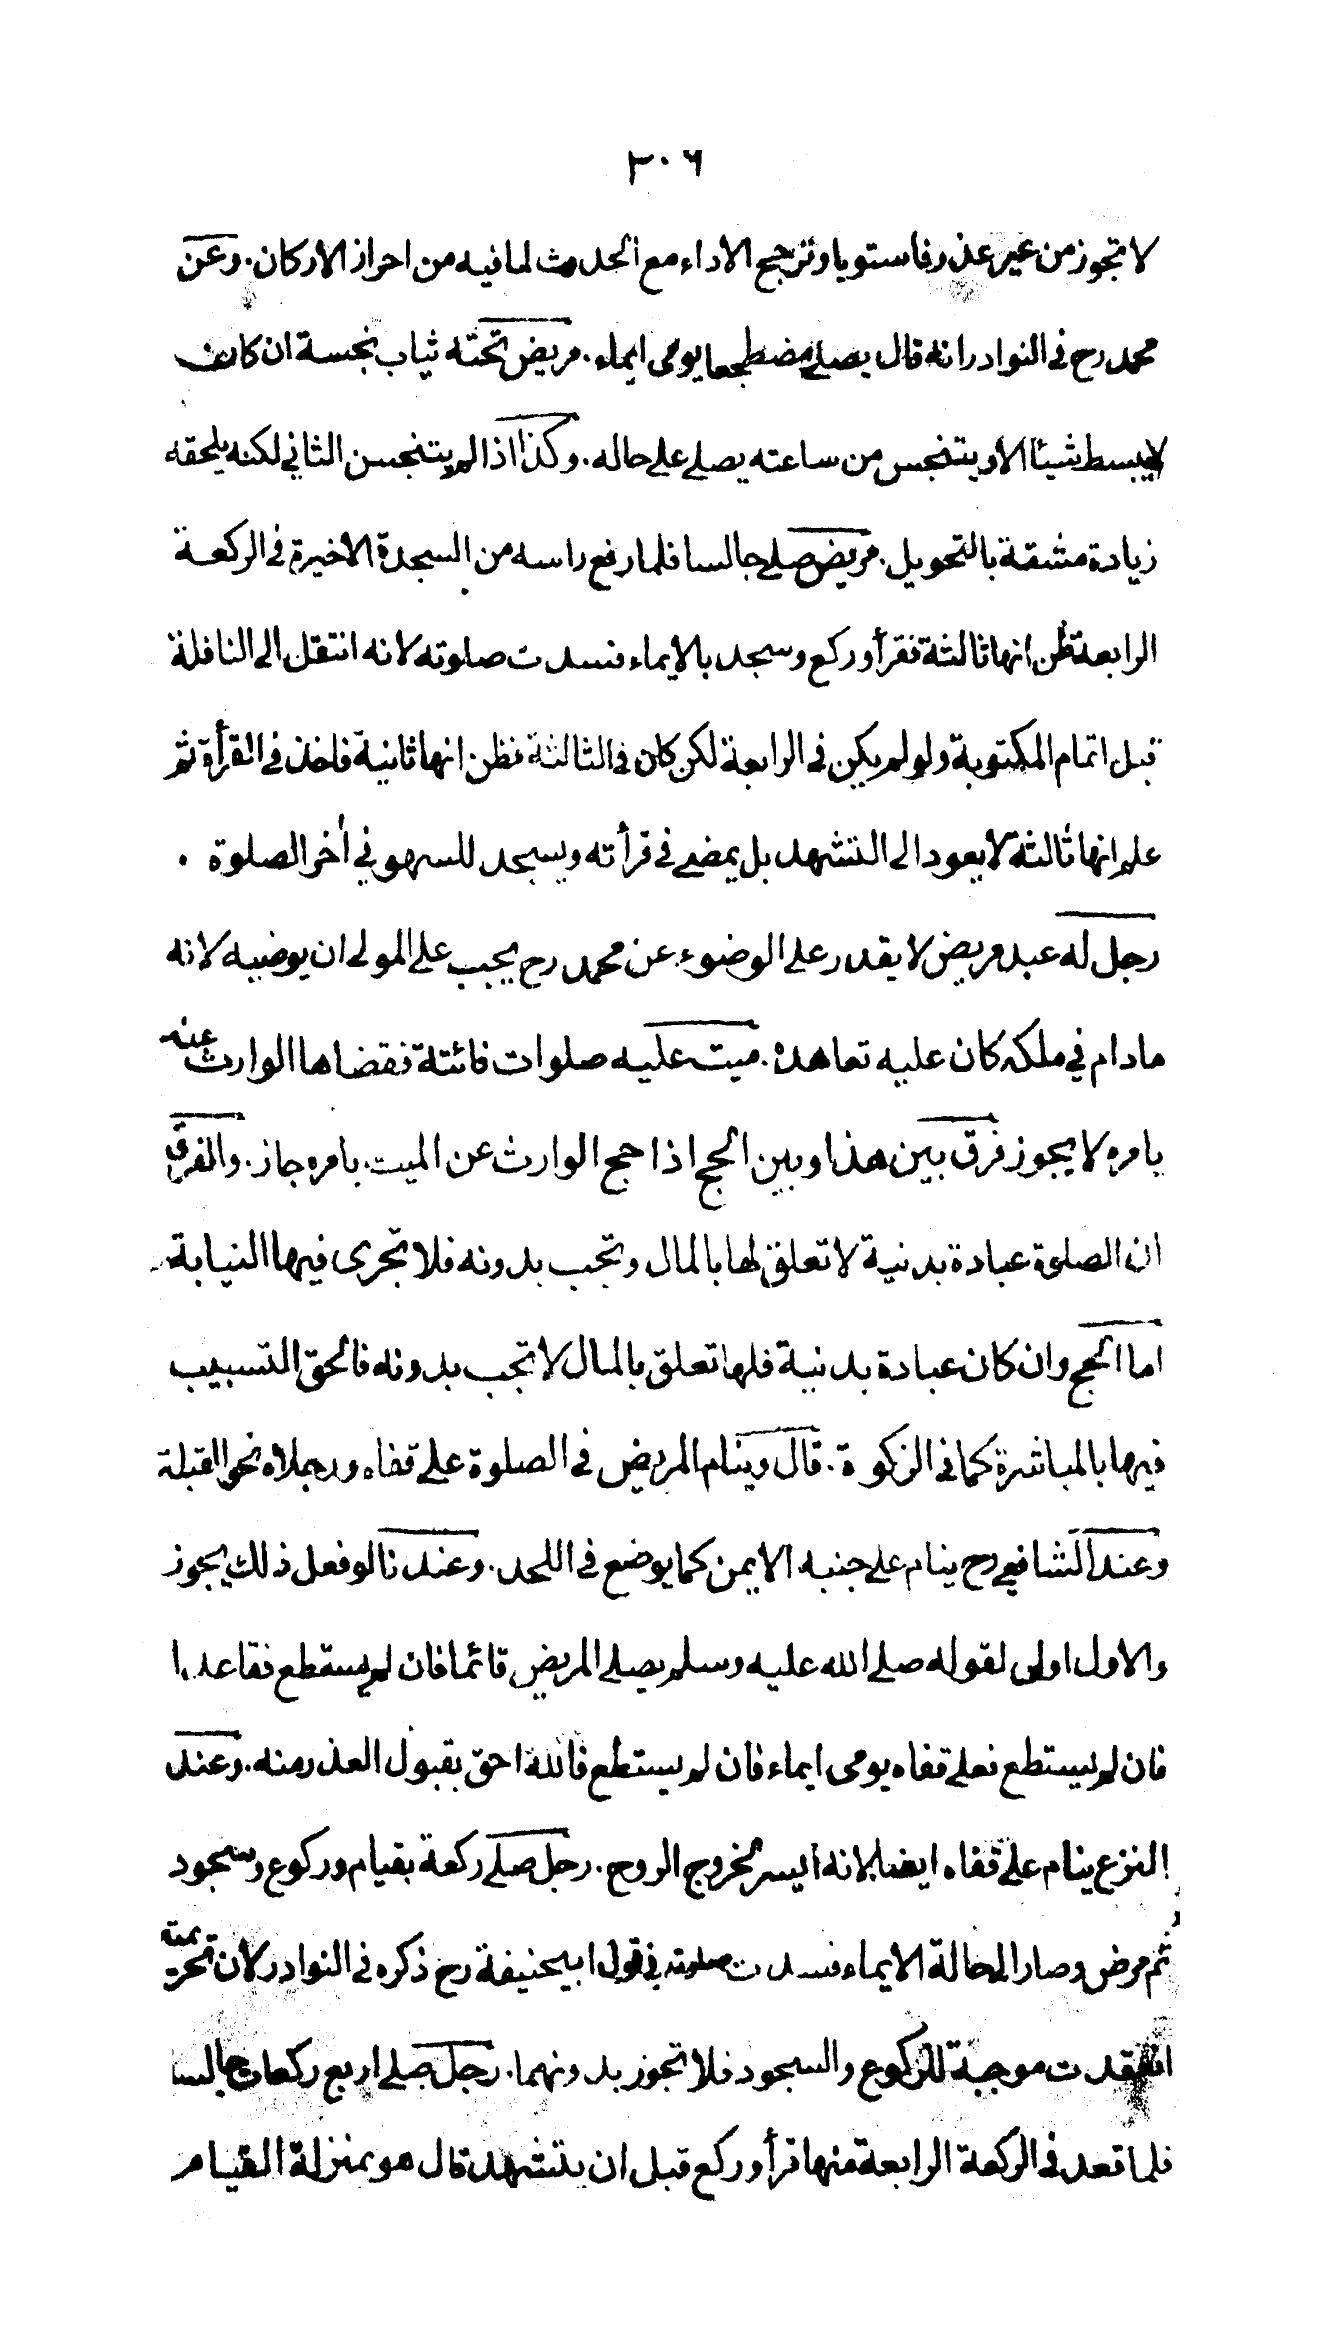 ٣٠٦
لا تجوز من غير عذر فاستويا وترجح الاداء مع الحدث لما فيه من احراز الاركان. وعن
محمد رح في النوادر انه قال يصلي مضطجعا يومى ايماء. مريض تحته ثياب نجسة ان كان
لا يبسط شيئا الا و يتنجس من ساعته يصلے علے حاله. وكذا اذا لم يتنجس الثاني لكنه يلحقه
زيادة مشقة بالتحويل. مريض صلے جالسا فلما رفع راسه من السجدة الاخيرة في الركعة
الرابعة ظن انها ثالثة فقرأ وركع وسجد بالايماء فسدت صلوته لانه انتقل الى النافلة
قبل اتمام المكتوبة ولو لم يكن في الرابعة لكن كان في الثالثة فظن انها ثانية فاخذ في القرأة ثم
علم انها ثالثة لا يعود الى التشهد بل يمضے في قرأته ويسجد للسهو في أخر الصلوة .
رجل له عبد مريض لا يقدر على الوضوء عن محمد رح يجب على المولى ان يوضيه لانه
مادام في ملكه كان عليه تعاهده. ميت عليه صلوات فائتة فقضاها الوارث عنه
بامره لا يجوز فرق بين هذا وبين الحج اذا حج الوارث عن الميت بامره جاز. والفرق
ان الصلوة عبادة بدنية لا تعلق لها بالمال وتجب بدونه فلا تجرى فيها النيابة
اما الحج وان كان عبادة بدنية فلها تعلق بالمال لا تجب بدونه فالحق التسبيب
فيها بالمباشرة كما في الزكوة. قال وينام المريض في الصلوة علے قفاه ورجلاه نحو القبلة
وعند الشافعي رح ينام علے جنبه الايمن كما يوضع في اللحد. وعندنا لو فعل ذلك يجوز
والاول اولى لقوله صلے الله عليه وسلم يصلے المريض قائما فان لم يستطع فقاعدا
فان لم يستطع فعلے قفاه يومى ايماء فان لم يستطع فالله احق بقبول العذر منه. وعند
النزع ينام علے قفاه ايضا لانه ايسر لخروج الروح. رجل صلے ركعة بقيام وركوع وسجود
ثم مرض وصار الى حالة الايماء فسدت صلوته في قول ابيحنيفة رح ذكره في النوادر لان تحريمته
انعقدت موجبة للركوع والسجود فلا تجوز بدونهما. رجل صلے اربع ركعات جالسا
فلما قعد في الركعة الرابعة منها قرأ وركع قبل ان يتشهد قال هو بمنزلة القيام